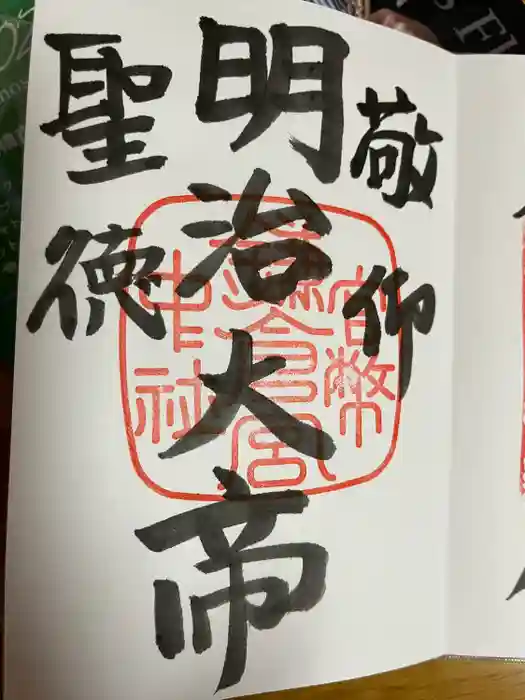 敬仰
明治大帝
聖徳
官幣
鎌倉宮
中社